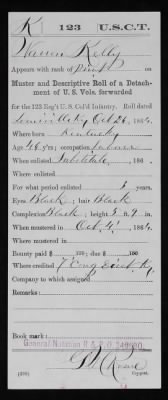 K | 123 | U.S.C.T.
Warren Kelly
Appears with rank of Priv on
Muster and Descriptive Roll of a Detach-
ment of U. S. Vols. forwarded
for the 123 Reg't U. S. Col'd Infantry. Roll dated
Louisville Ky Oct 26, 1864.
Where born Kentucky
Age 44 y'rs; occupation Laborer
When enlisted Substitute, 186 .
Where enlisted
For what period enlisted 1 years.
Eyes Black; hair Black
Complexion Black; height 5 ft. 9 in.
When mustered in Oct 4, 1864.
Where mustered in
Bounty paid $ 100; due $ 100
Where credited 7 Cong Dist Ky
Company to which assigned
Remarks:
Book mark:
(339)